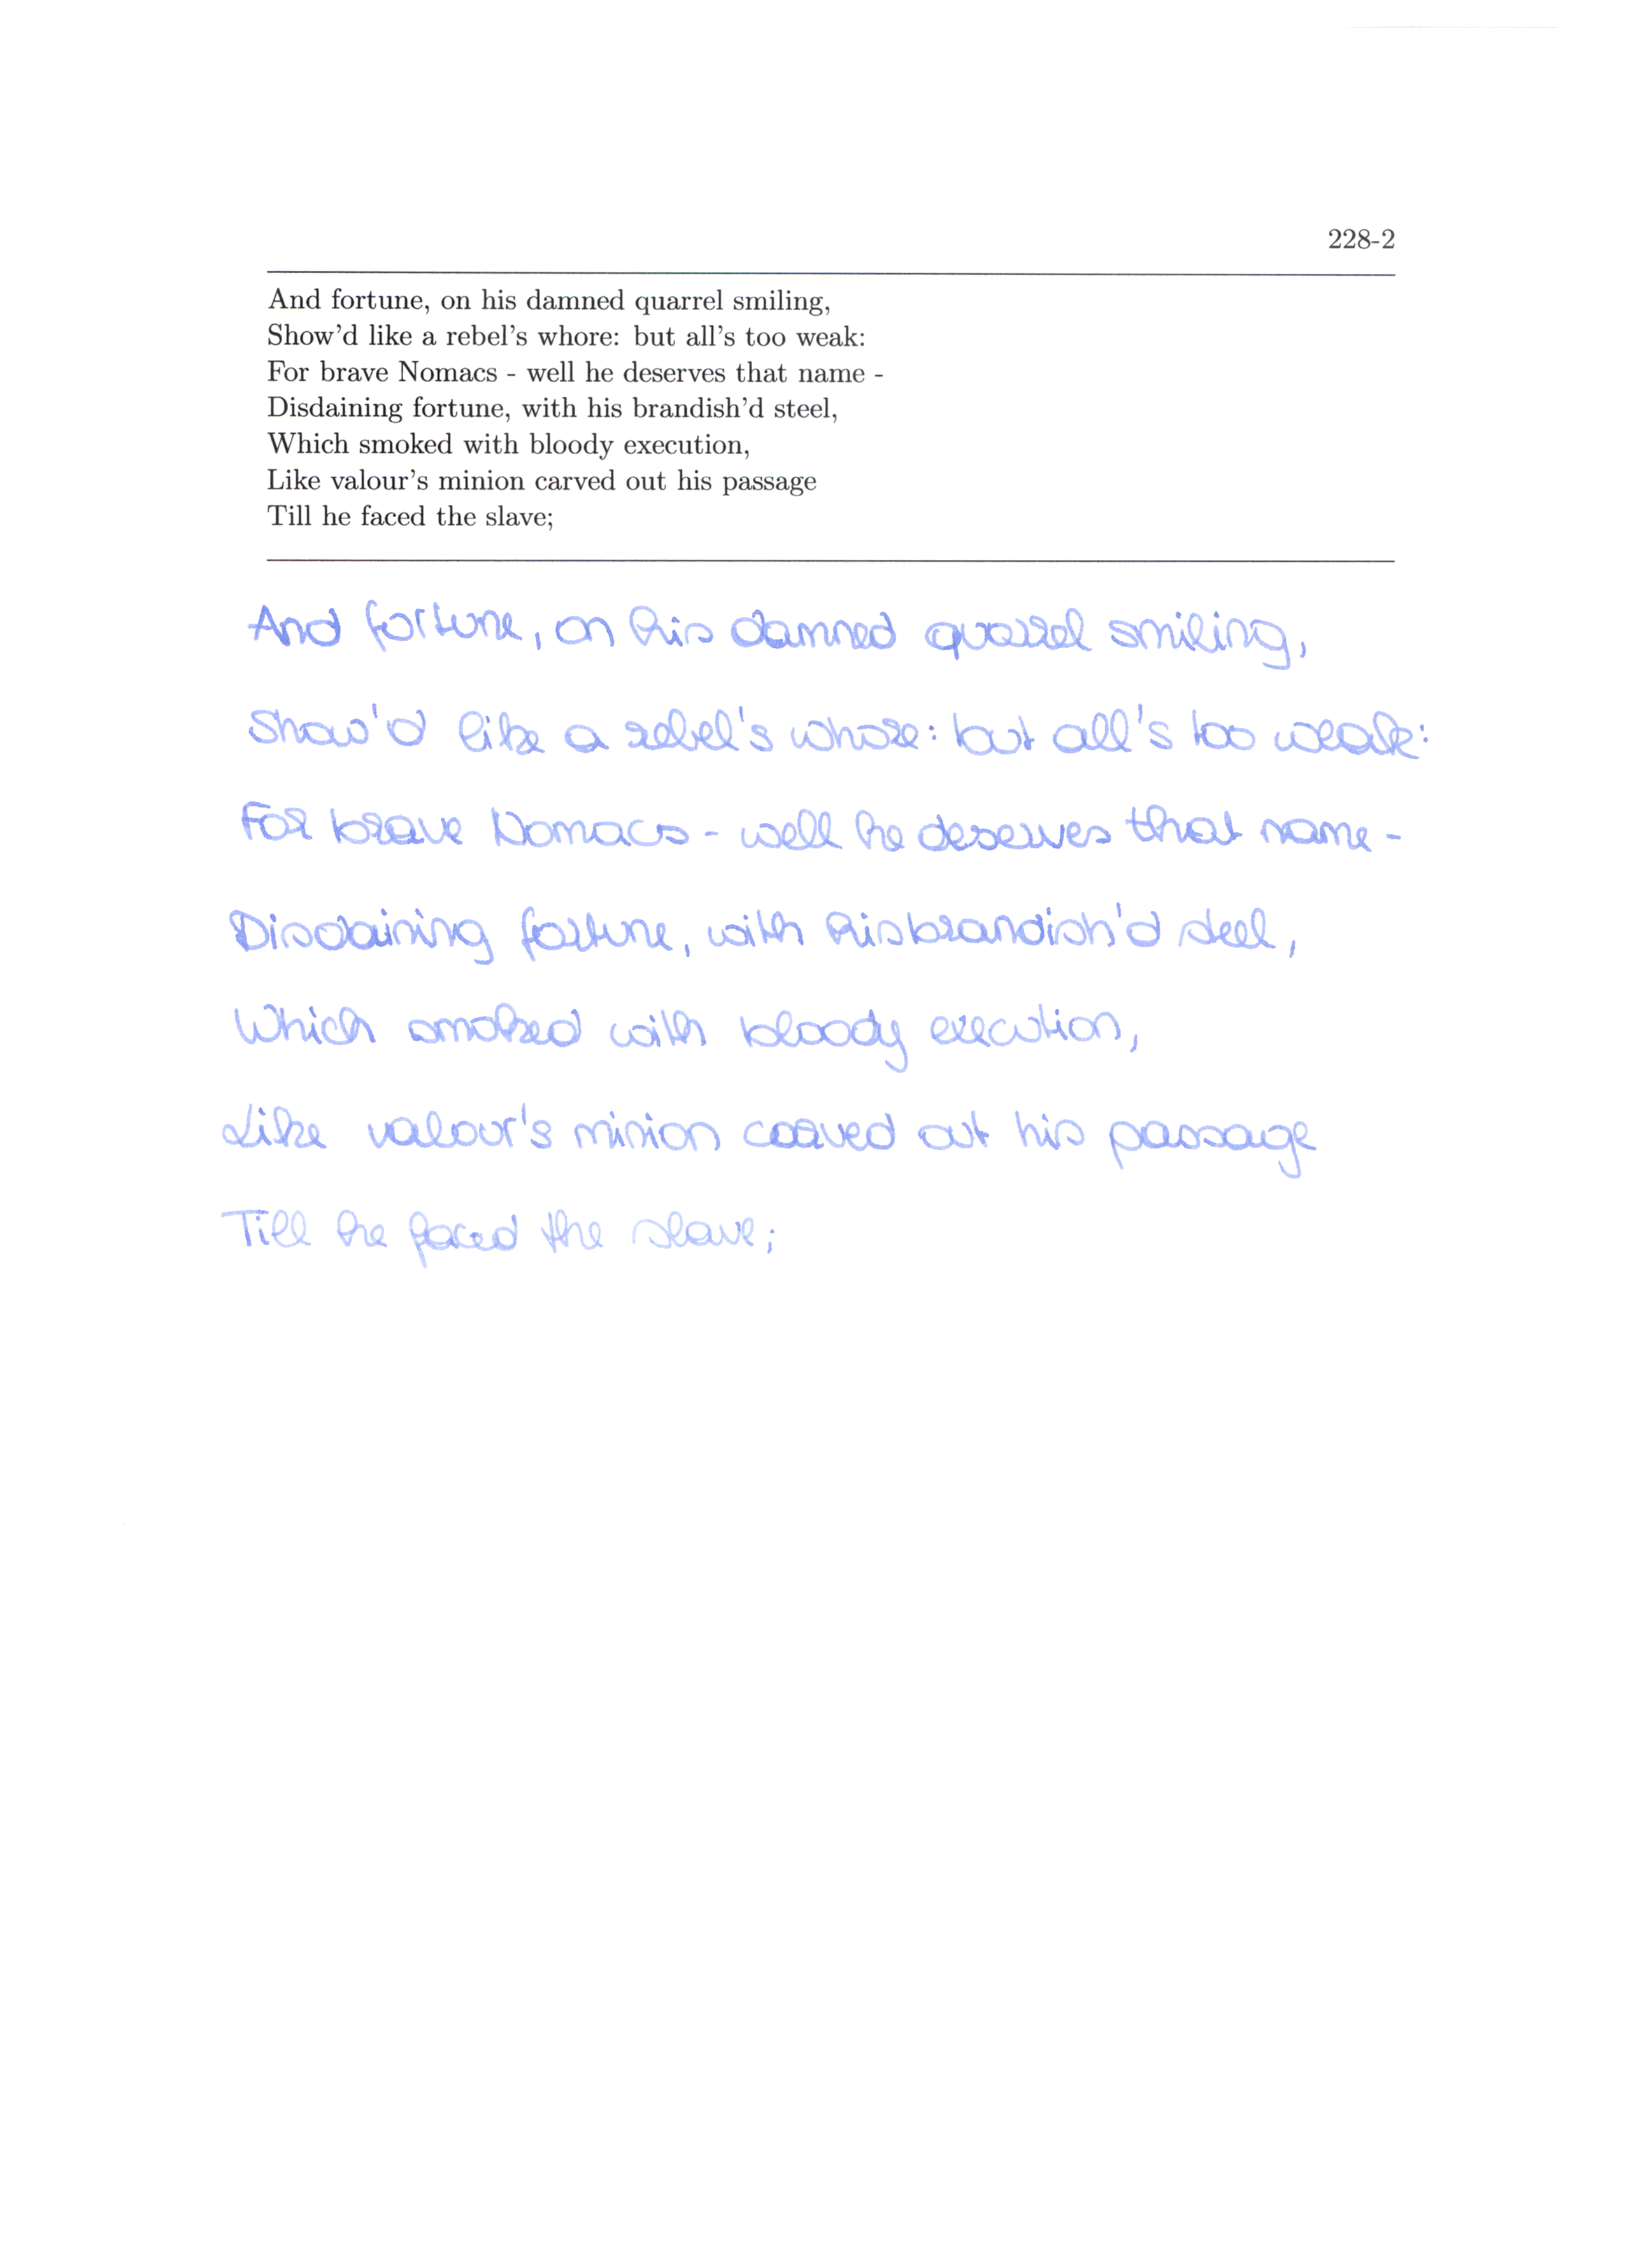 228-2
And fortune, on his damned quarrel smiling,
Show'd like a rebel's whore: but all's too weak:
For brave Nomacs - well he deserves that name -
Disdaining fortune, with his brandish'd steel,
Which smoked with bloody execution,
Like valour's minion carved out his passage
Till he faced the slave;
And fortune, on his damned quarrel smiling,
Show'd like a rebel's whore: but all's too weak:
For brave Nomacs - well he deserves that name -
Disdaining fortune, with his brandish'd steel,
Which smoked with bloody execution,
Like valour's minion carved out his passage
Till he faced the slave;